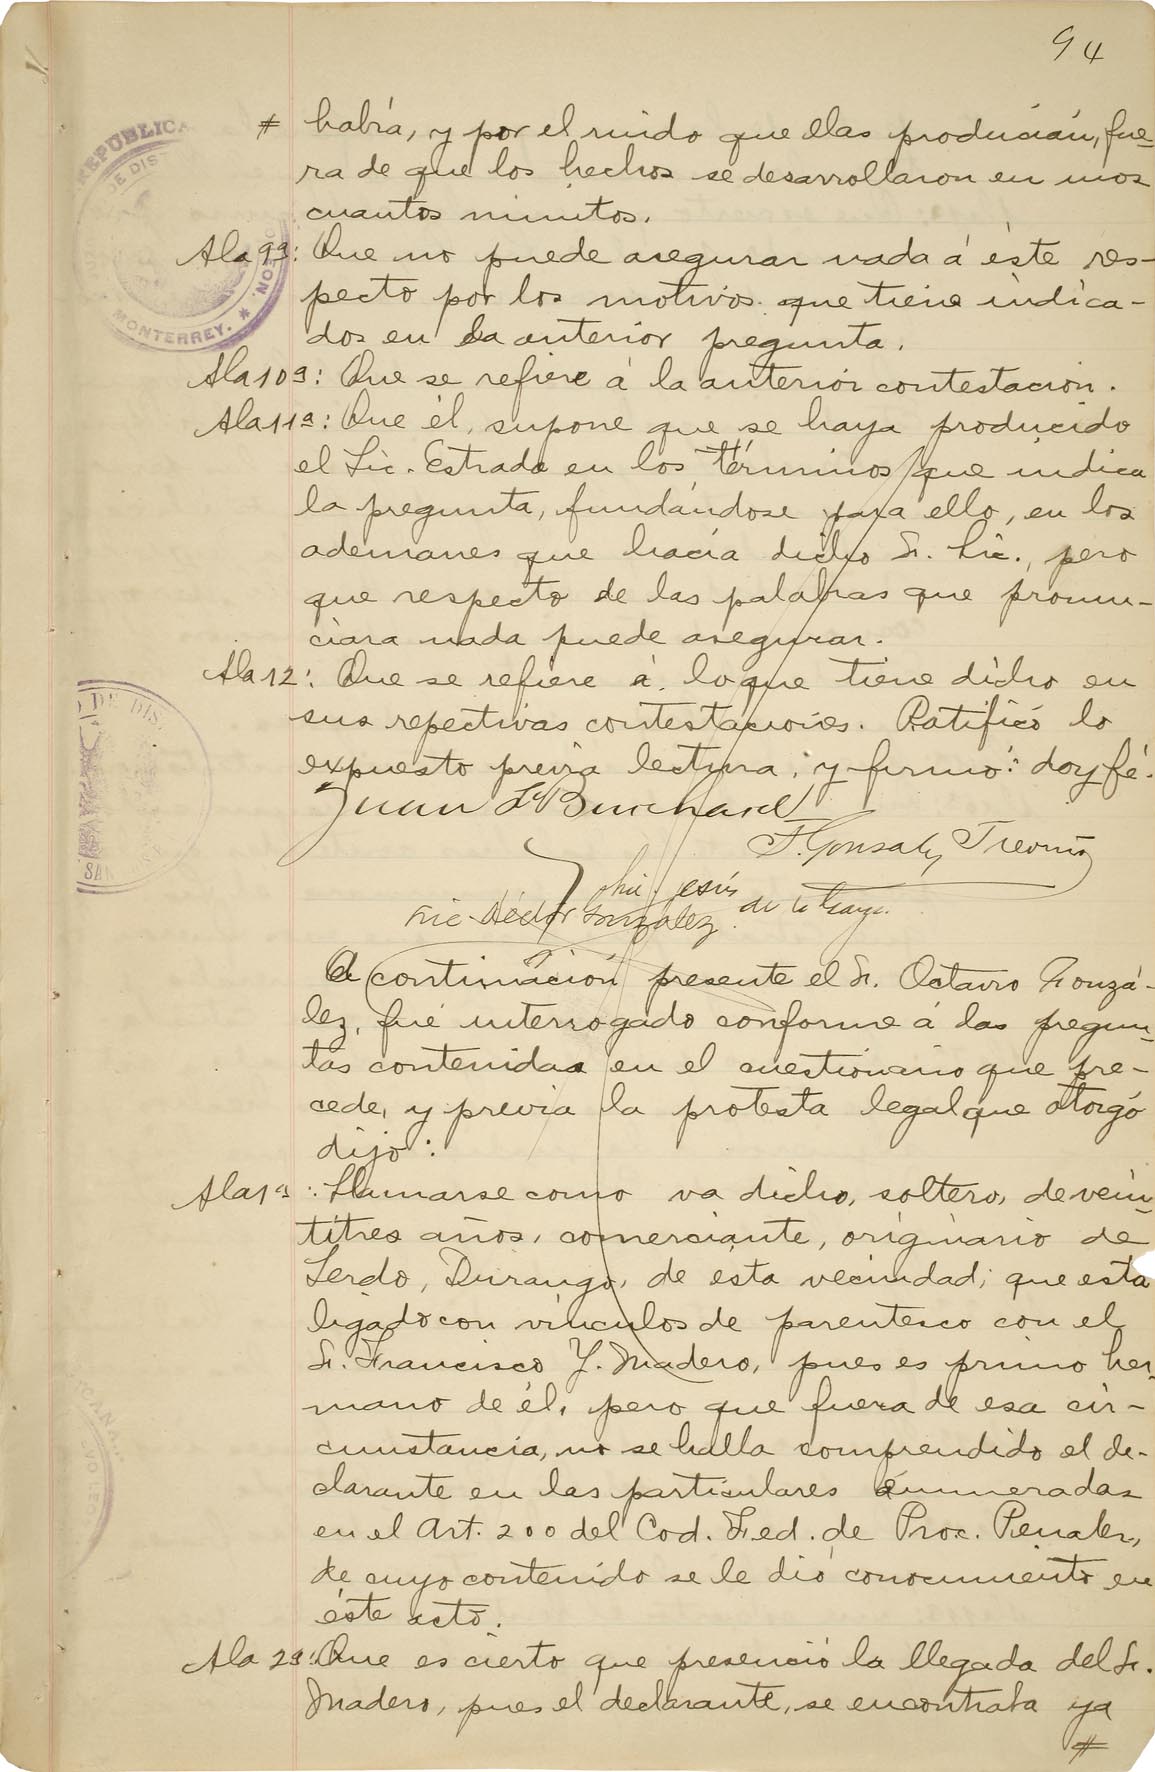 94
# habrá, y por el ruido que ellas producían, fue-
ra de que los hechos se desarrollaron en unos
cuantos minutos.
A la 9ª: Que no puede asegurar nada á éste res-
pecto por los motivos que tiene indica-
dos en la anterior pregunta.
A la 10ª: Que se refiere á la anterior contestación.
A la 11ª: Que él, supone que se haya producido
el Lic. Estrada en los términos que indica
la pregunta, fundándose para ello, en los
ademanes que hacía dicho Sr. Lic., pero
que respecto de las palabras que pronun-
ciara nada puede asegurar.
A la 12: Que se refiere á lo que tiene dicho en
sus repectivas contestaciones. Ratificó lo
expuesto previa lectura, y firmó: doy fé.
Juan L. Burchard
F. Gonzalez Treviño
Lic. Jesús de la Garza.
Lic. Héctor González.
A continuación presente el Sr. Octavio Gonzá-
lez, fué interrogado conforme á las pregun-
tas contenidas en el cuestionario que pre-
cede, y previa la protesta legal que otorgó
dijó:
A la 1ª: Llamarse como va dicho, soltero, de vein-
titres años, comerciante, originario de
Lerdo, Durango, de esta vecindad; que esta
ligado con vínculos de parentesco con el
Sr. Francisco Y. Madero, pues es primo her-
mano de él, pero que fuera de esa cir-
cunstancia, no se halla comprendido el de-
clarante en las particulares enumeradas
en el Art. 200 del Cod. Fed. de Proc. Penales,
de cuyo contenido se le dió conocimiento en
éste acto.
A la 2ª: Que es cierto que presenció la llegada del Sr.
Madero, pues el declarante, se encontraba ya
#
REPUBLICA
DE DIS
MONTERREY.
NOS
DE DIS
SAN